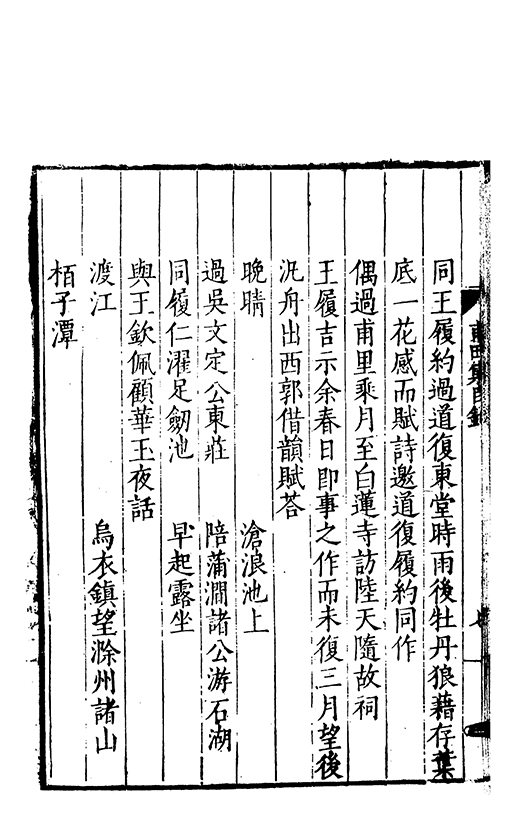 甫田集目錄
同王履約過道復東堂時雨後牡丹狼藉存葉
底一花感而賦詩邀道復履約同作
偶過甫里乘月至白蓮寺訪陸天隨故祠
王履吉示余春日即事之作而未復三月望後
汎舟出西郭借韻賦荅
晚晴　滄浪池上
過吳文定公東莊　陪蒲澗諸公游石湖
同履仁濯足劒池　早起露坐
與王欽佩顧華玉夜話
渡江　烏衣鎮望滁州諸山
栢子潭